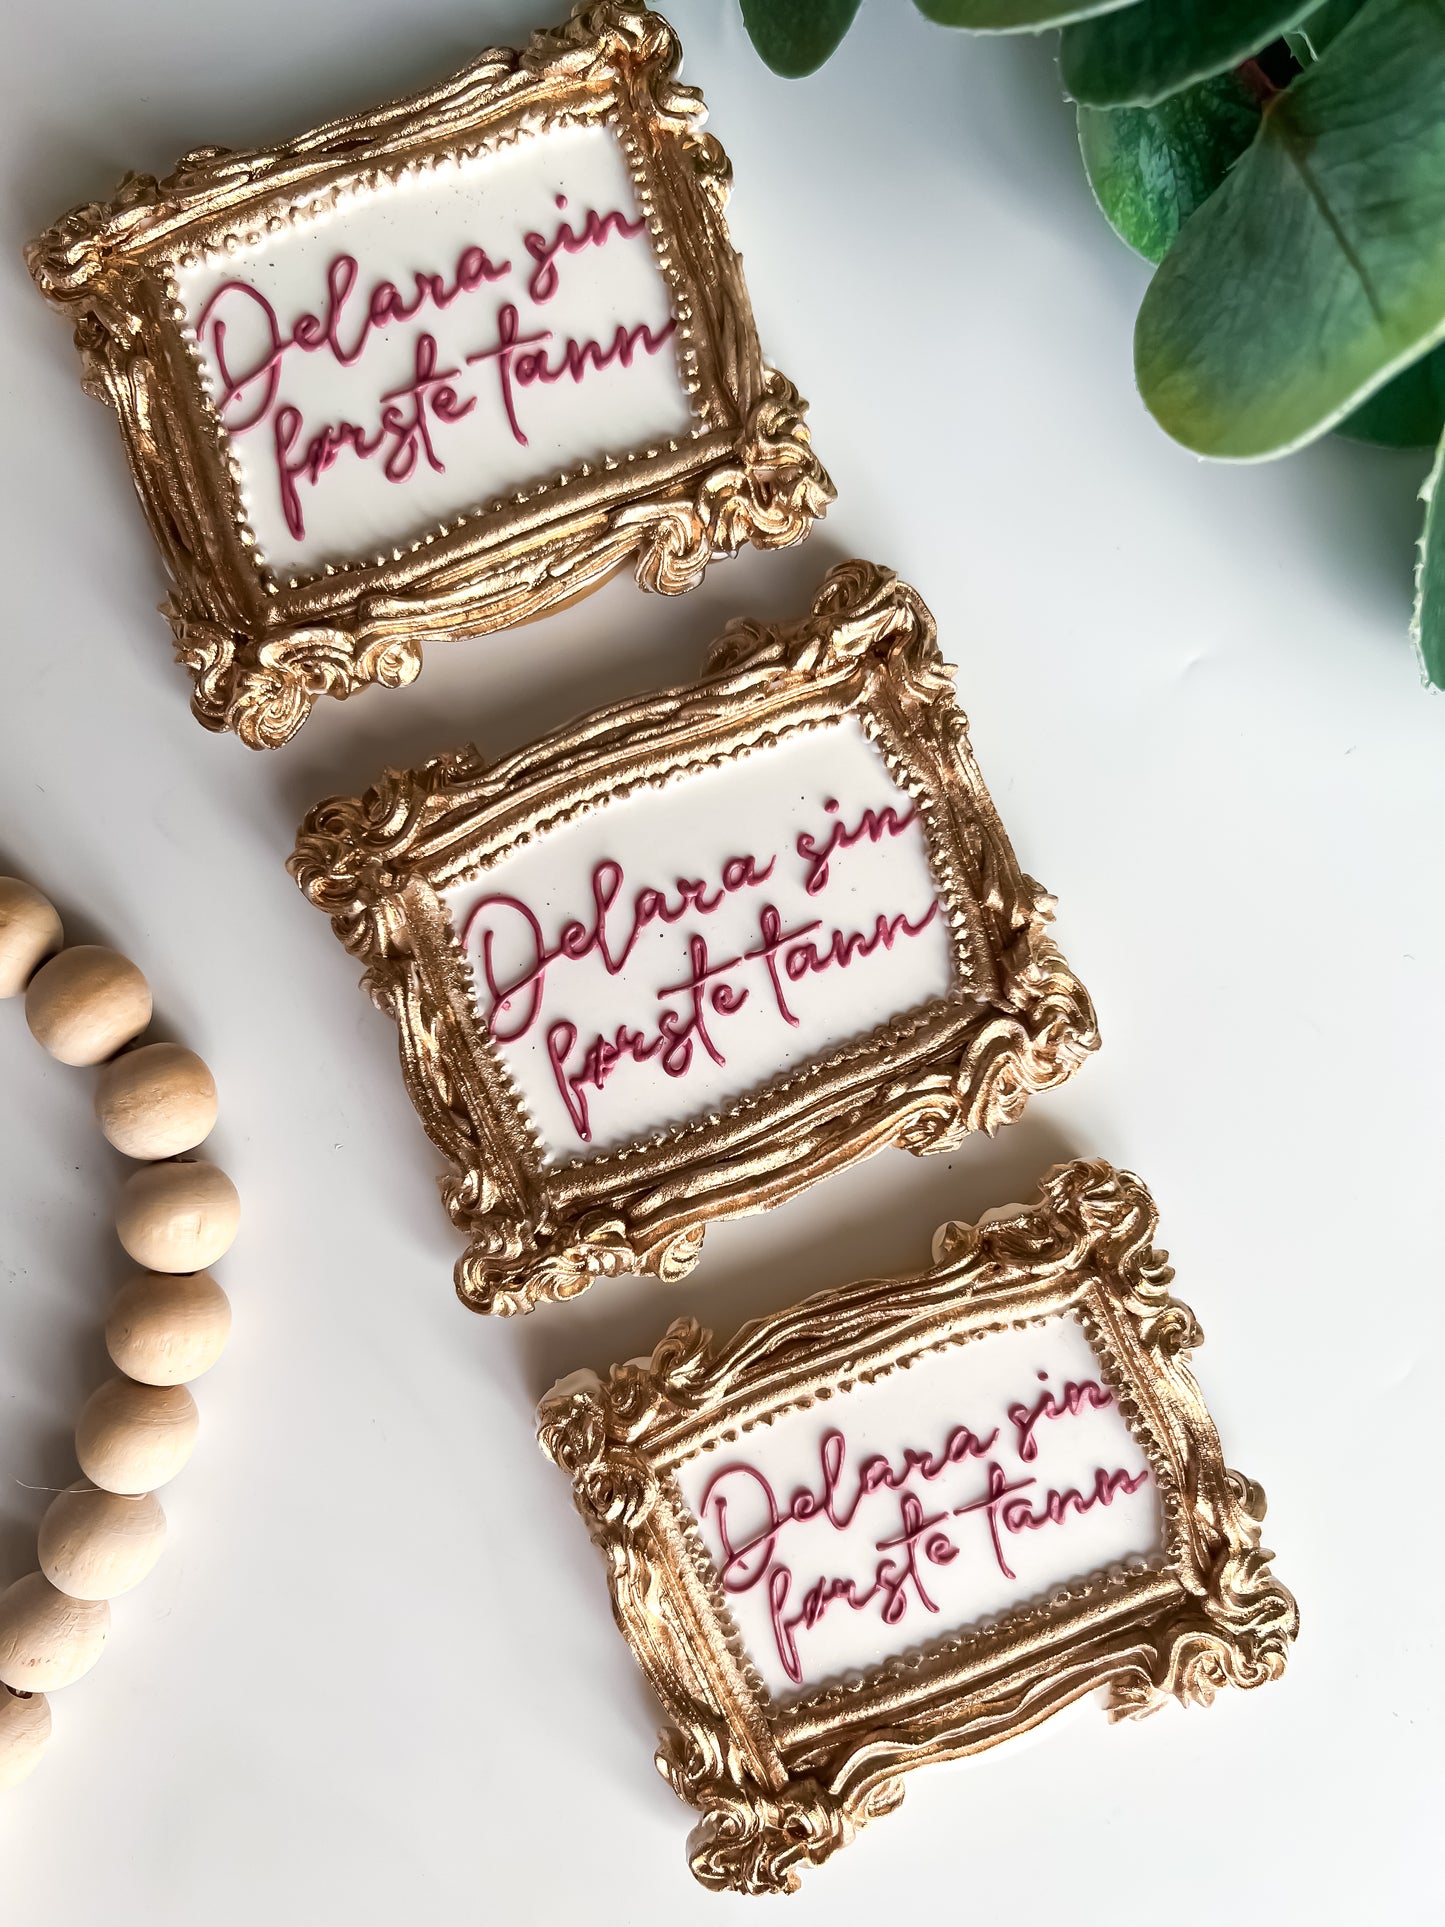 Delara sin
første tann
Delara sin
første tann
Delara sin
første tann